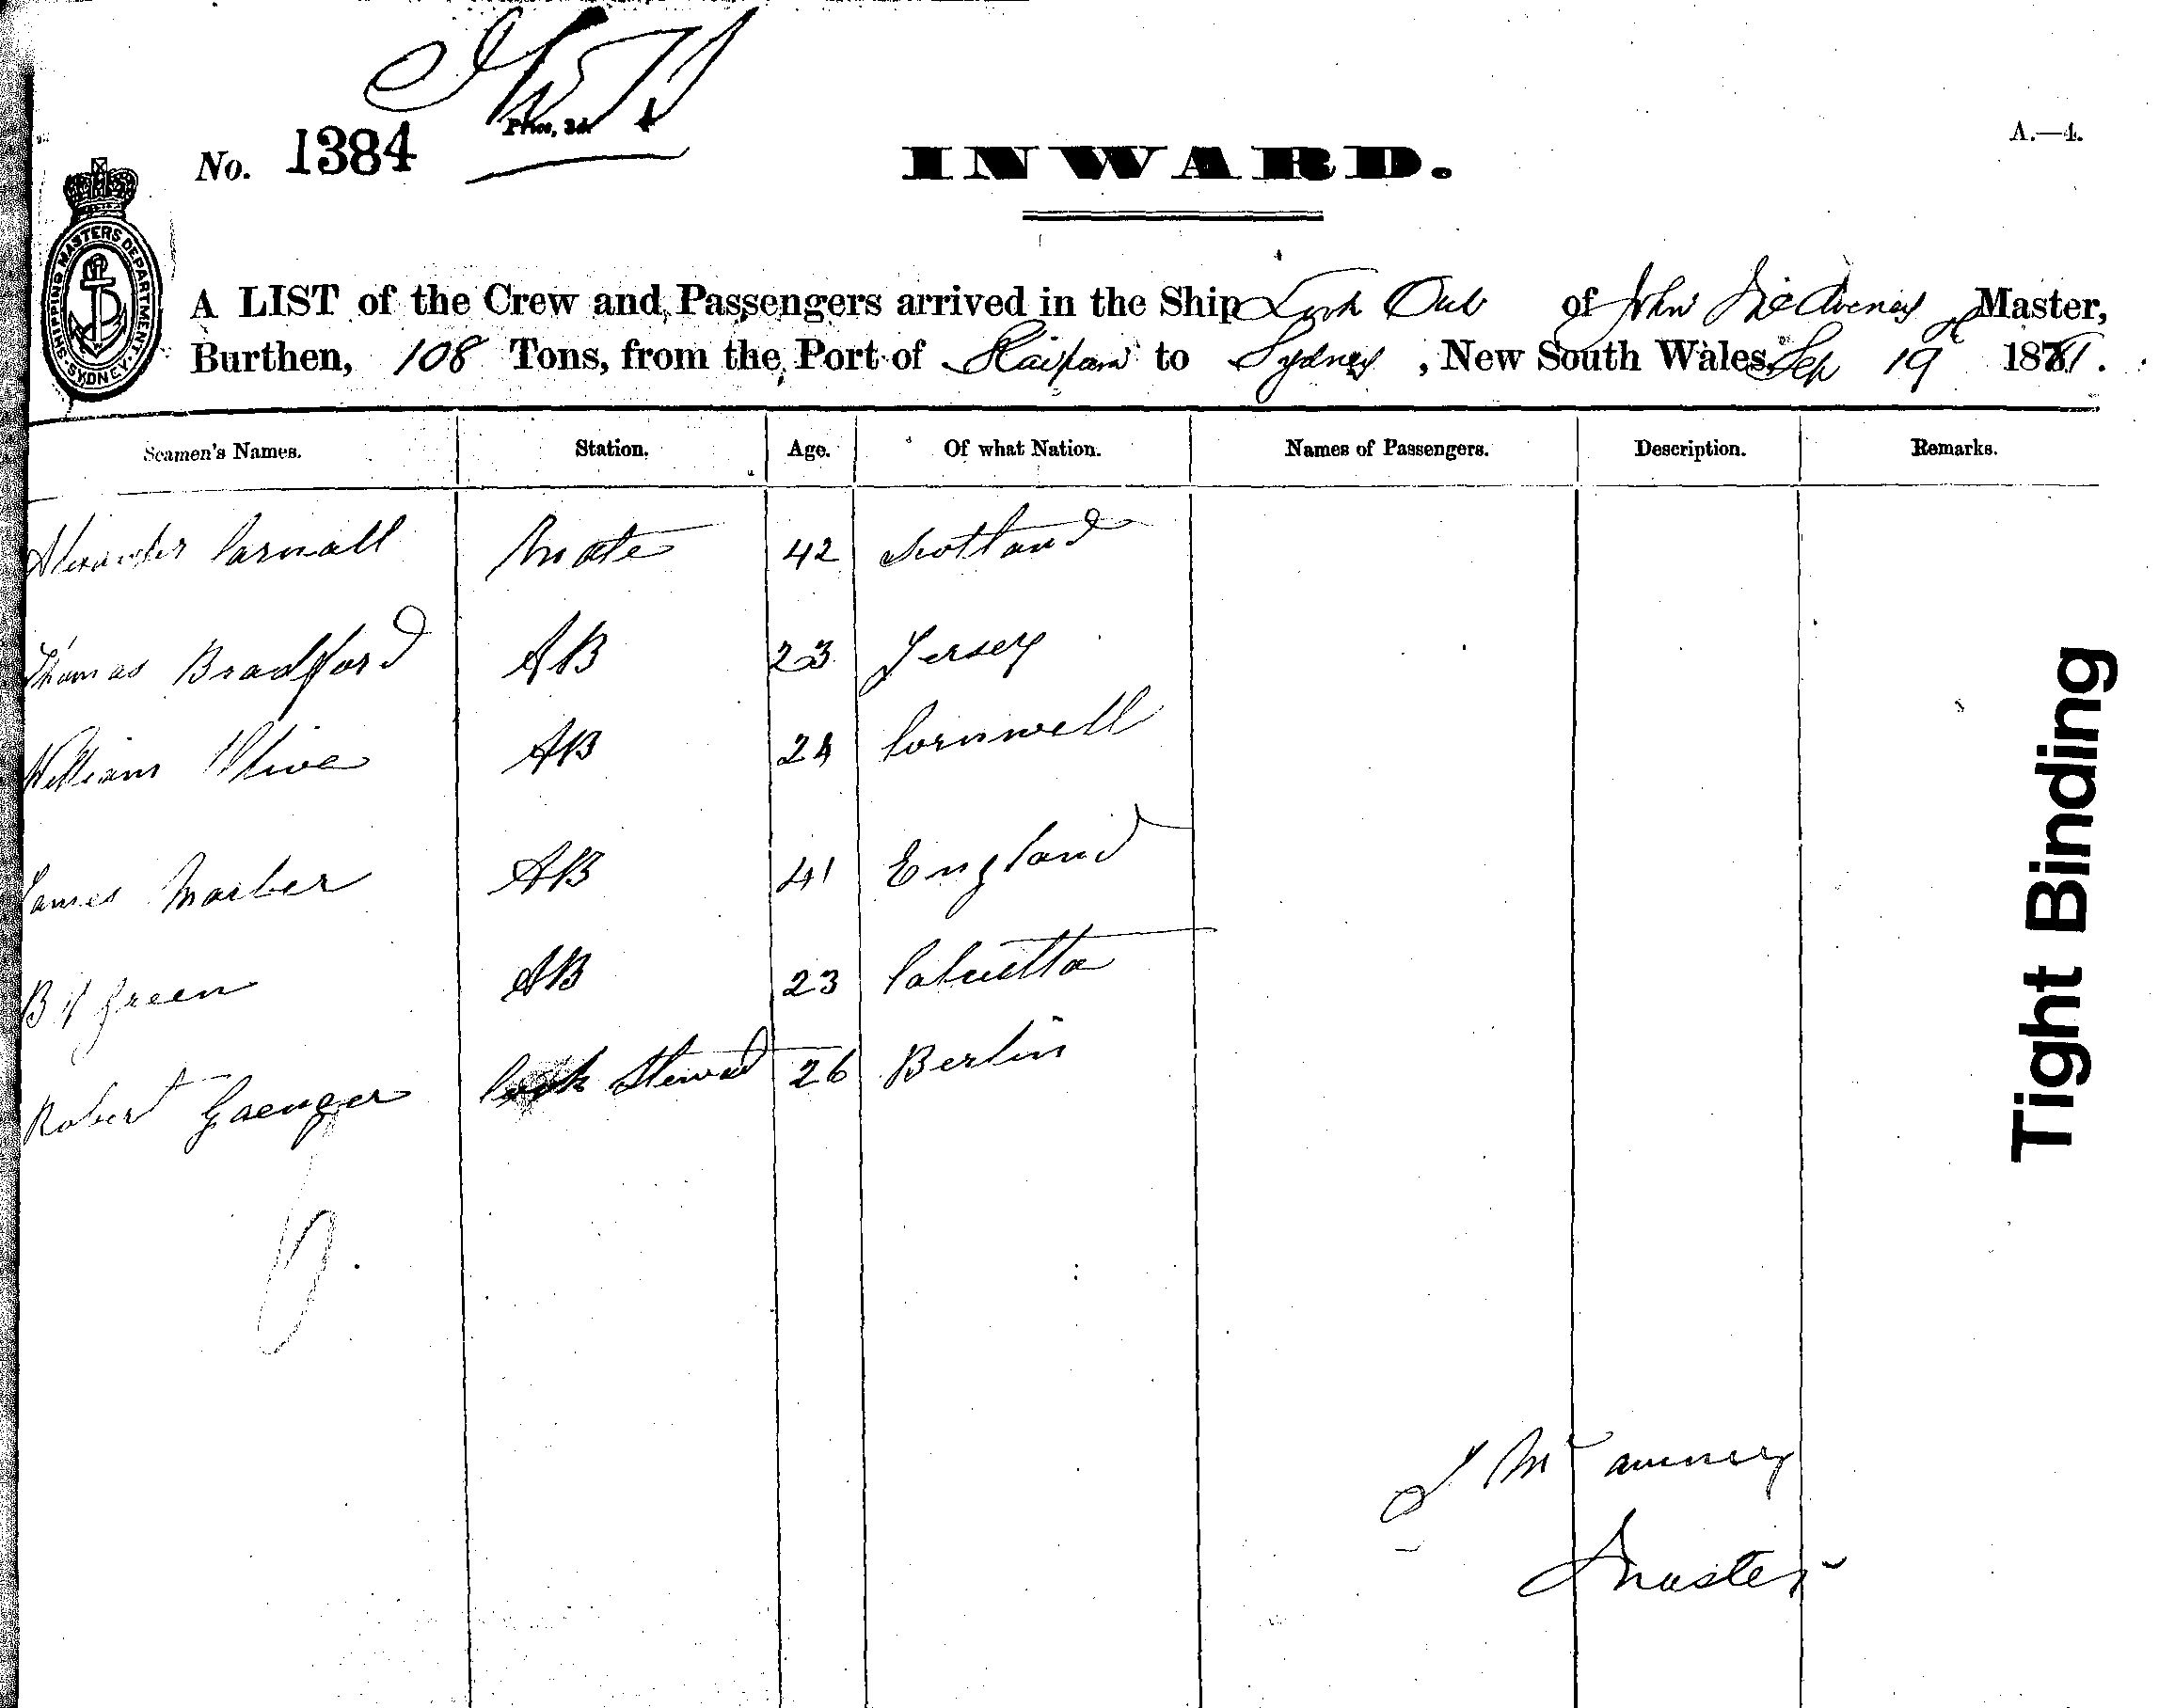 Price, 3d.
No. 1384
INWARD.
A.—4.
SHIPPING MASTERS DEPARTMENT SYDNEY
A LIST of the Crew and Passengers arrived in the Ship Look Out of John Master,
Burthen, 108 Tons, from the Port of Kaipara to Sydney, New South Wales, Sep 19 1881.
Seamen's Names. Station. Age. Of what Nation. Names of Passengers. Description. Remarks.
Alexander Carnall Mate 42 Scotland
Thomas Bradford AB 23 Jersey
William Olive AB 24 Cornwell
James AB 41 England
B H Green AB 23 Calcutta
Robert Gaenger Cook Steward 26 Berlin
Tight Binding
J Mc
Master